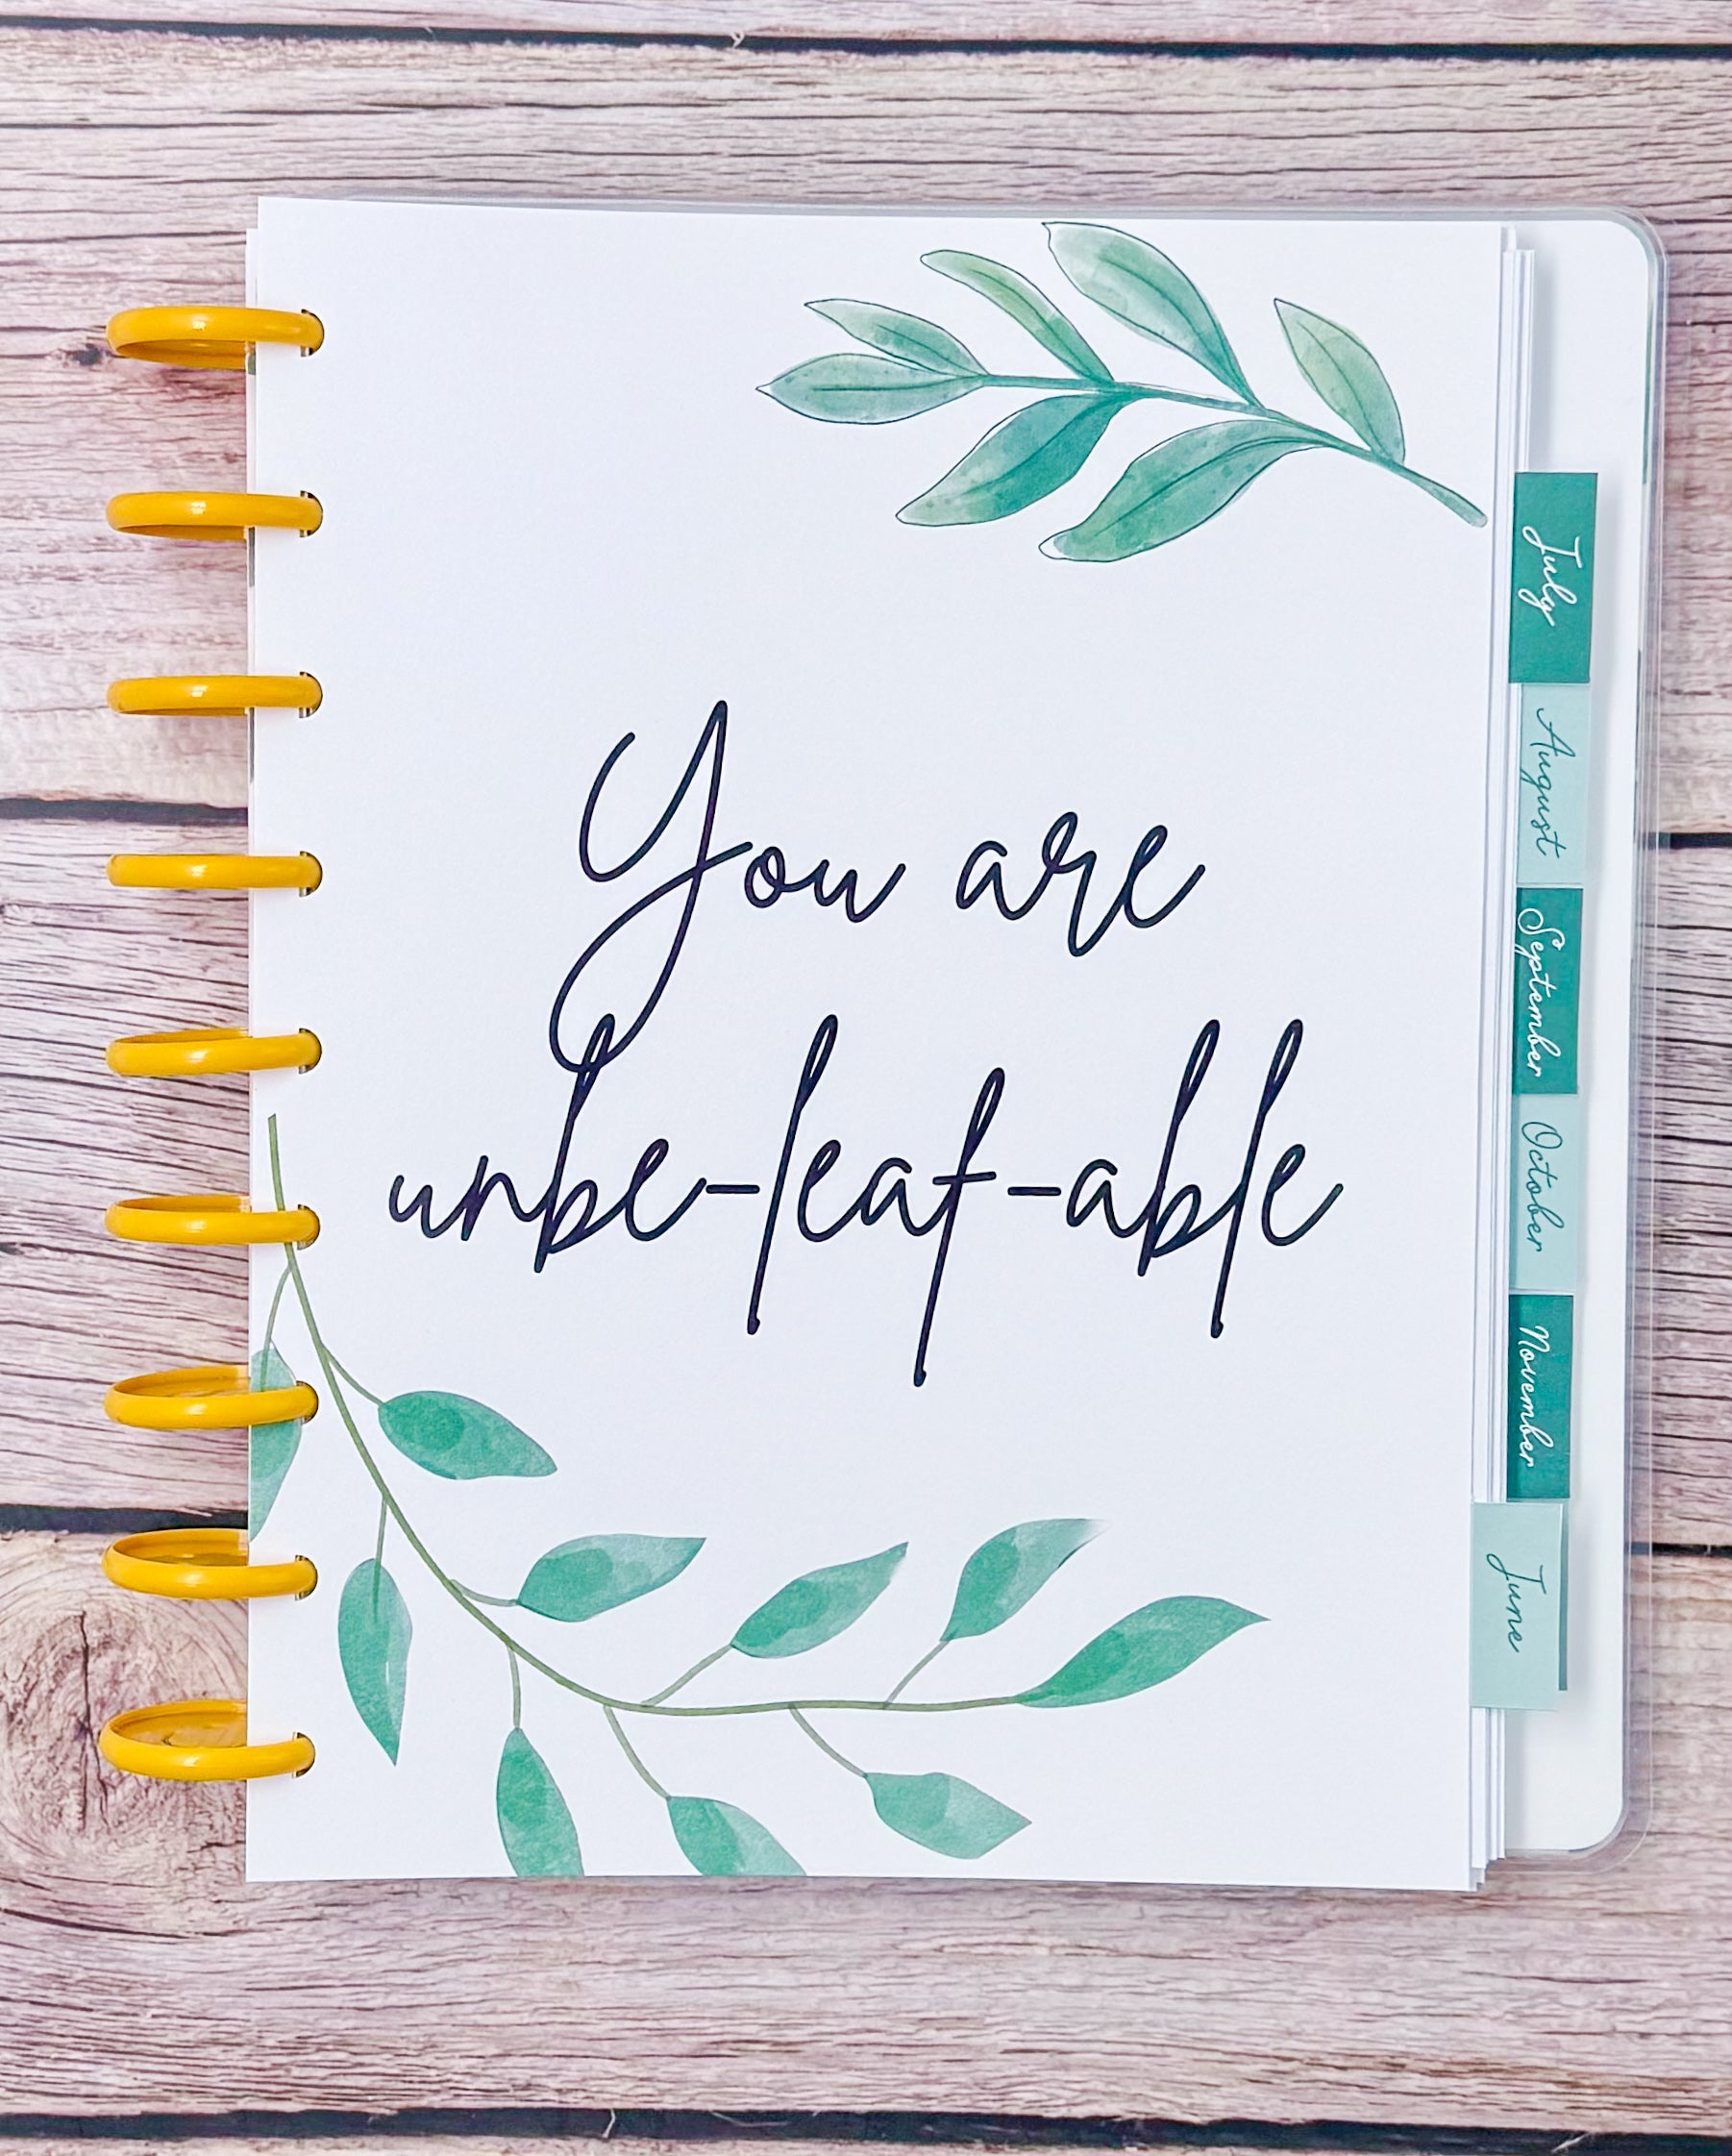 You are
unbe-leaf-able
July
August
September
October
November
June